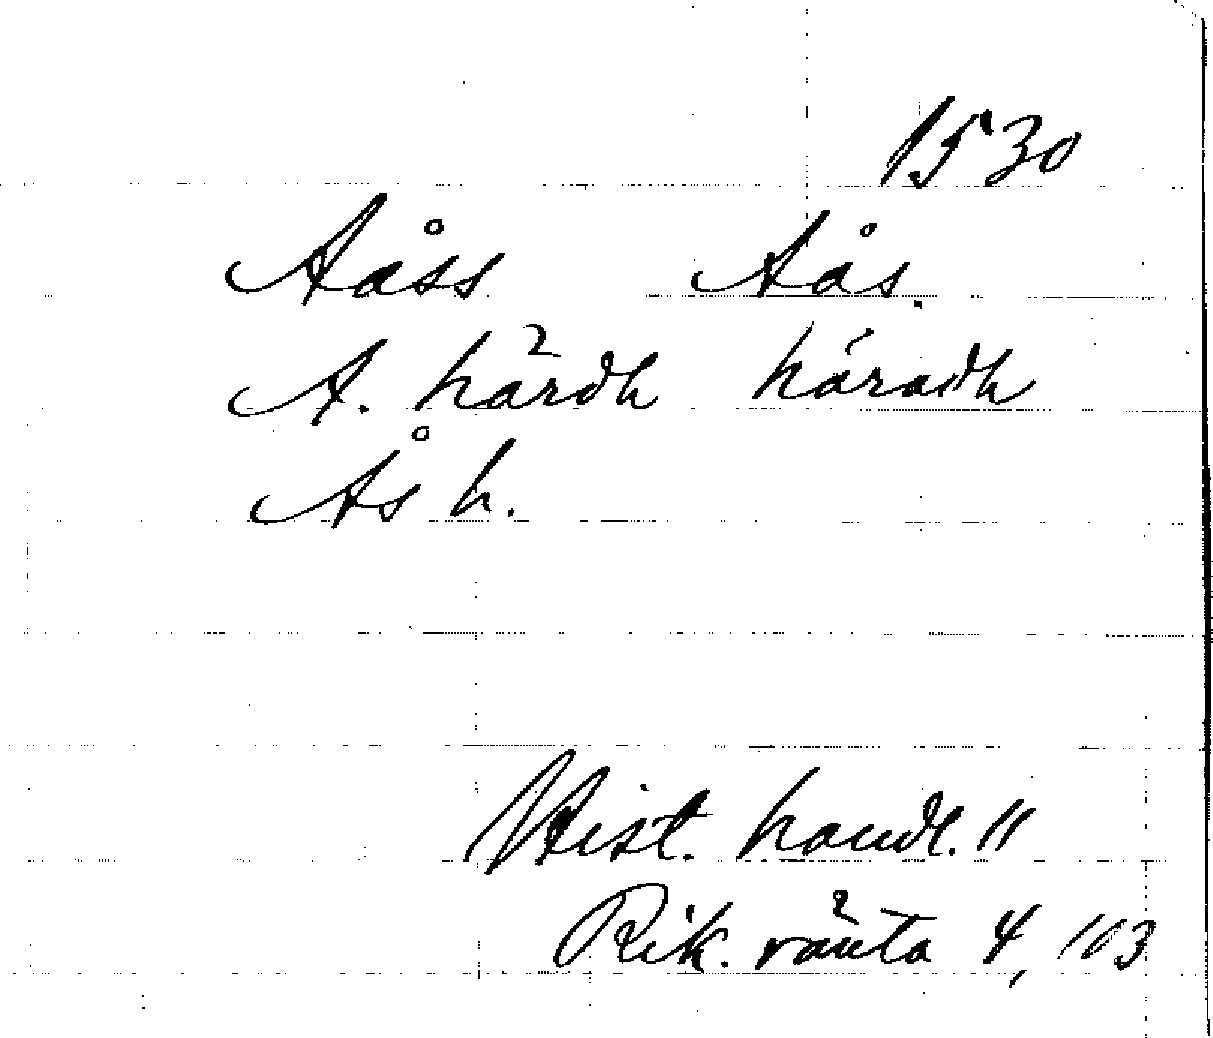 1530
Aåss Aås.
A. härdh häradh
Ås h.
Hist. handl. 11
Rik. ränta 4, 103